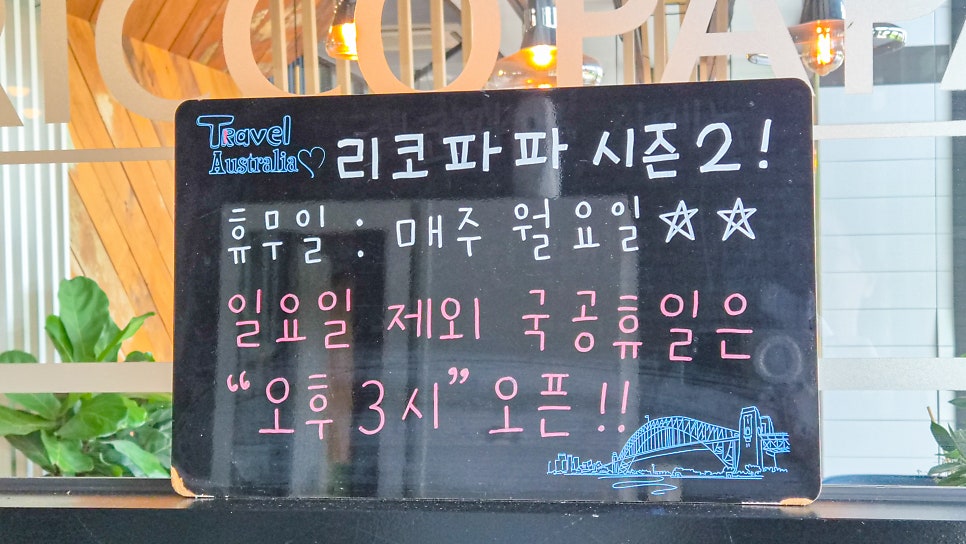 RICCO PAPA
Travel
Australia
리코파파 시즌2!
휴무일 : 매주 월요일☆☆
일요일 제외 국공휴일은
“오후 3시” 오픈!!